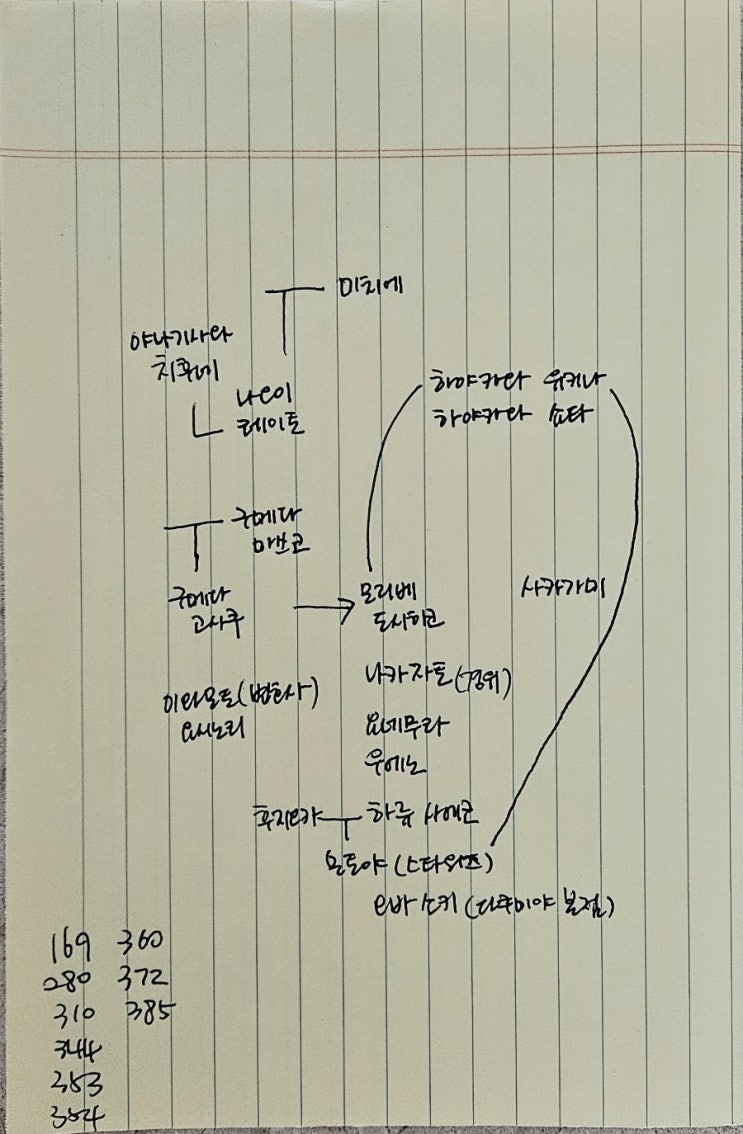 미치에
야나기사라
치후네
나오이
레이토
하야카와 유키나
하야카와 쇼타
구메다
마쓰코
구메다
고사쿠
모리베
도시히코
사카가미
나카자토 (경위)
이와모토 (변호사)
요시노리
요네무라
우에노
후지오카
하류 사에코
모토야 (스타워즈)
오바 소키 (다쿠미야 본점)
169 360
280 372
310 385
344
353